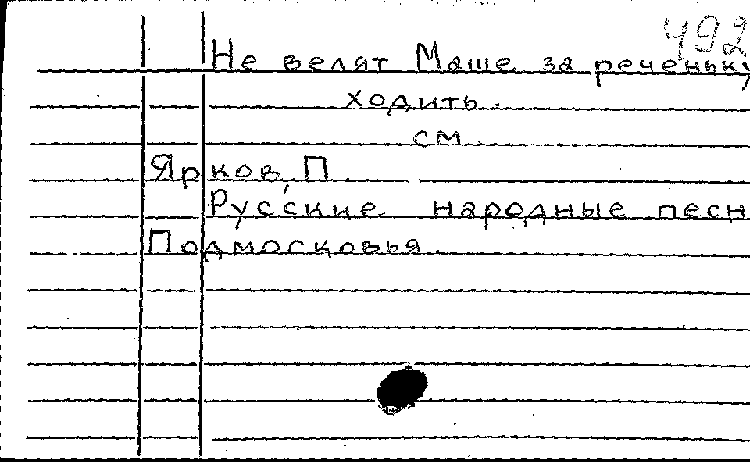 492
Не велят Маше за реченьку
ходить.
см
Ярков, П.
Русские народные песн
Подмосковья.